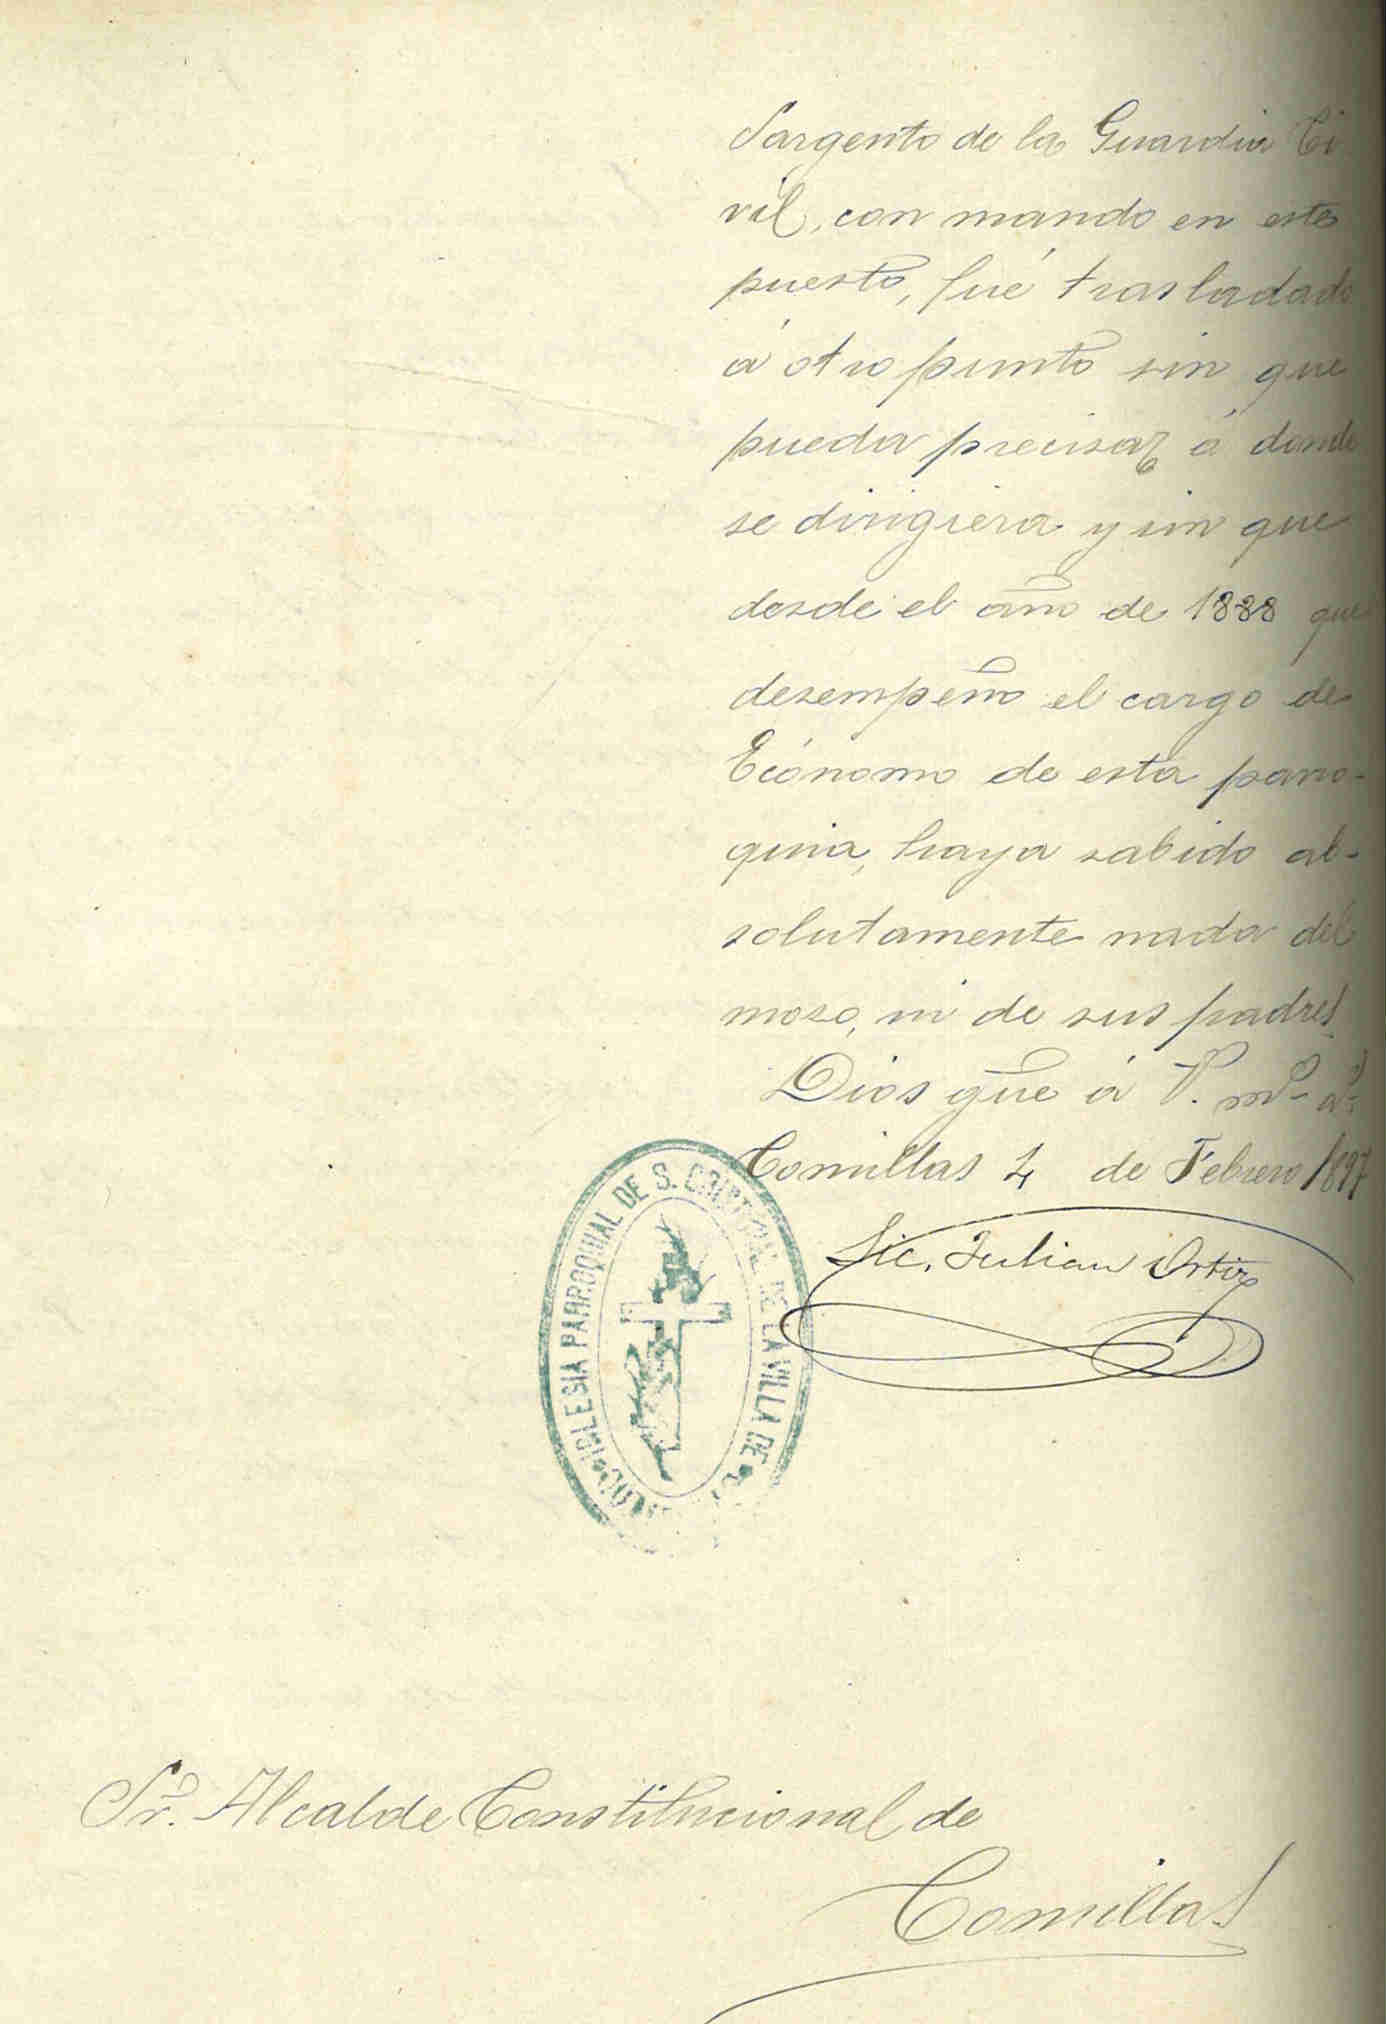 Sargento de la Guardia Ci
vil, con mando en este
puesto, fué trasladado
á otro punto sin que
pueda precisar á donde
se dirigiera y sin que
desde el año de 1888 que
desempeño el cargo de
Ecónomo de esta parro-
quia, haya sabido ab-
solutamente nada del
moso, ni de sus padres.
Dios gũe á V. m.s a.s
Comillas 4 de Febrero 1897
Lic. Julian Ortiz
IGLESIA PARROQUIAL DE S. CRISTOBAL DE LA VILLA DE
Sr. Alcalde Constitucional de
Comillas